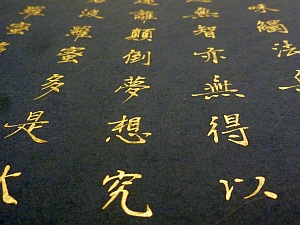 味觸法
無智亦無得以
遠離顛倒夢想究
波羅蜜多是大
羅蜜